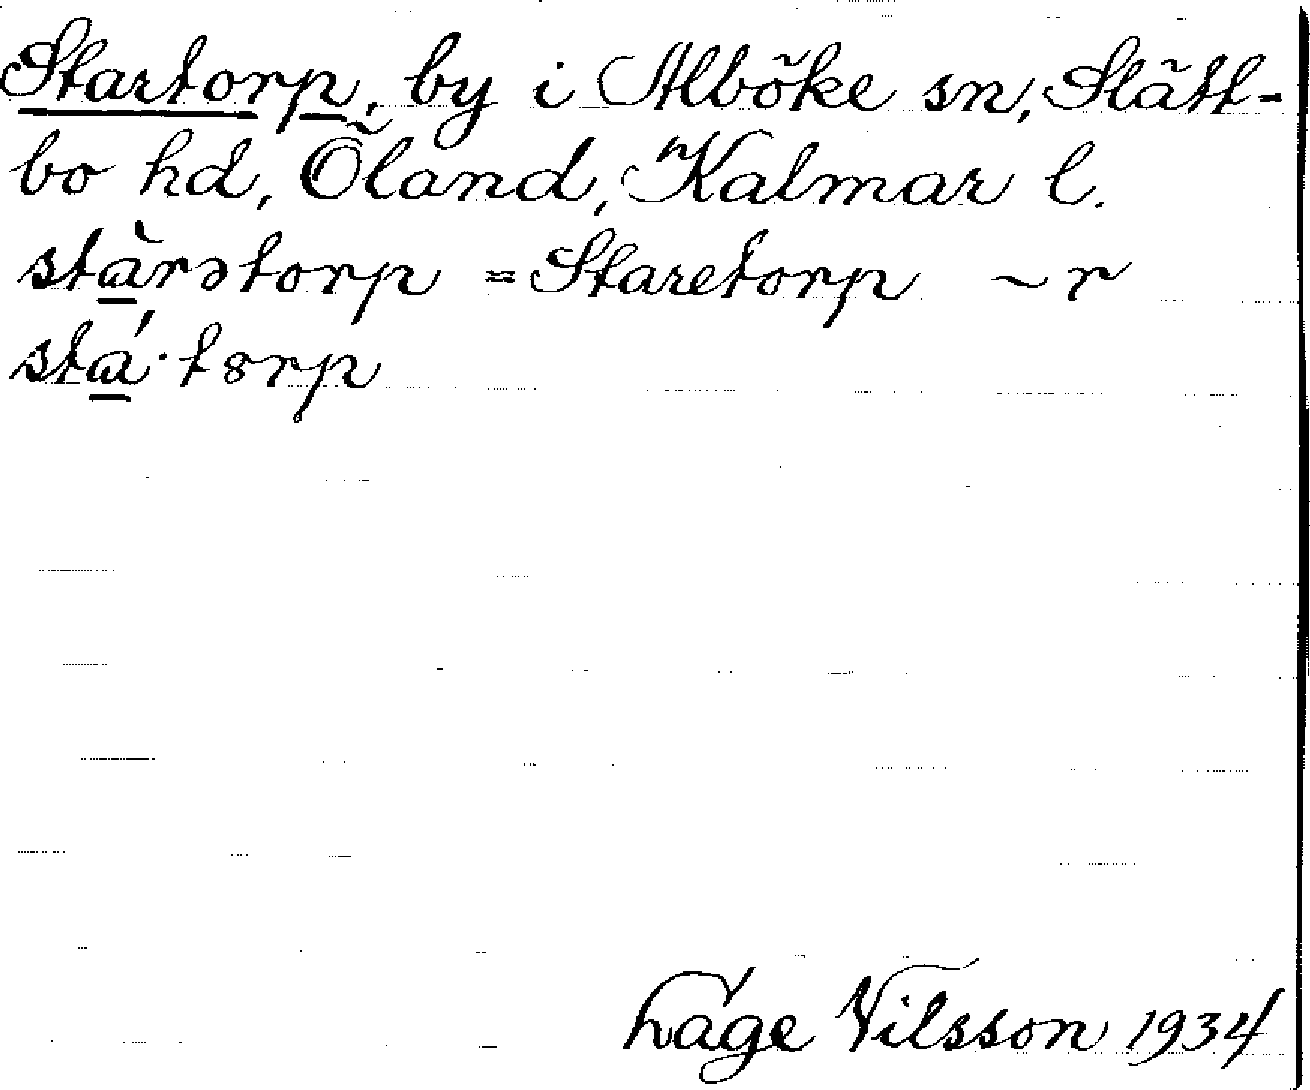 Startorp, by i Alböke sn, Slätt-
bo hd, Öland, Kalmar l.
stàrətorp = Staretorp ~r
stá·tȣrp
Låge Nilsson 1934